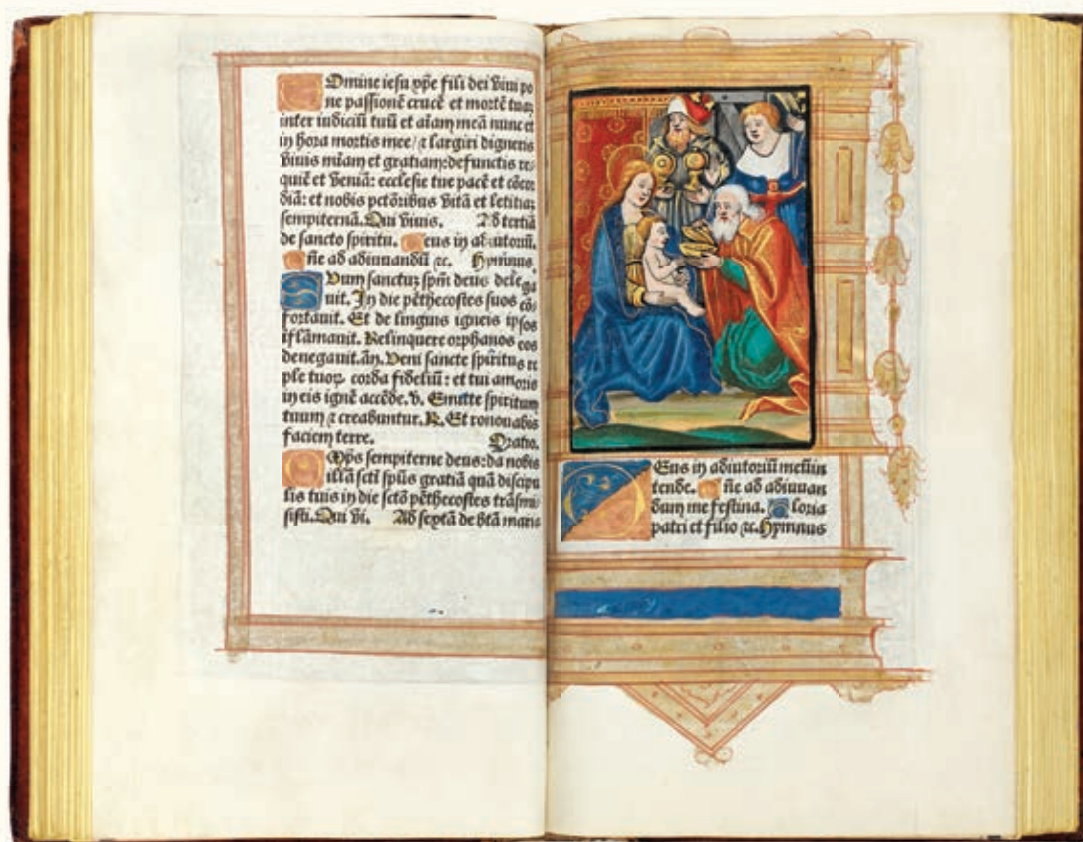 Domine iesu xp̄e fili dei viui po
ne passionē crucē et mortē tuaꝫ
inter iudiciū tuū et aīam meā nunc et
in hora mortis mee / ⁊ largiri digneris
viuis mīam et gratiam: defunctis re-
quiē et veniā: ecclesie tue pacē et cōcor
diā: et nobis pctōribus vitā et letitiaꝫ
sempiternā. Qui viuis. Ad tertiā
de sancto spiritu. Deus in adiutoriū.
Dñe ad adiuuandū ⁊c. Hymnus.
Num sanctuꝫ spm̄ deus delega
uit. In die pēthecostes suos cō-
fortauit. Et de linguis igneis ipsos
īflāmauit. Relinquere orphanos eos
denegauit. an̄. Veni sancte spiritus re
ple tuoꝝ corda fideliū: et tui amoris
in eis ignē accēde. v. Emitte spiritum
tuum ⁊ creabuntur. R. Et renouabis
faciem terre. Oratio.
Omp̄s sempiterne deus: da nobis
illā sctī sp̄us gratiā quā discipu
lis tuis in die sctā pēthecostes trāsmi
sisti. Qui vi. Ad sextā de btā maria
Deus in adiutoriū meū in
tende. Dñe ad adiuuan
dum me festina. Gloria
patri et filio ⁊c. Hymnus